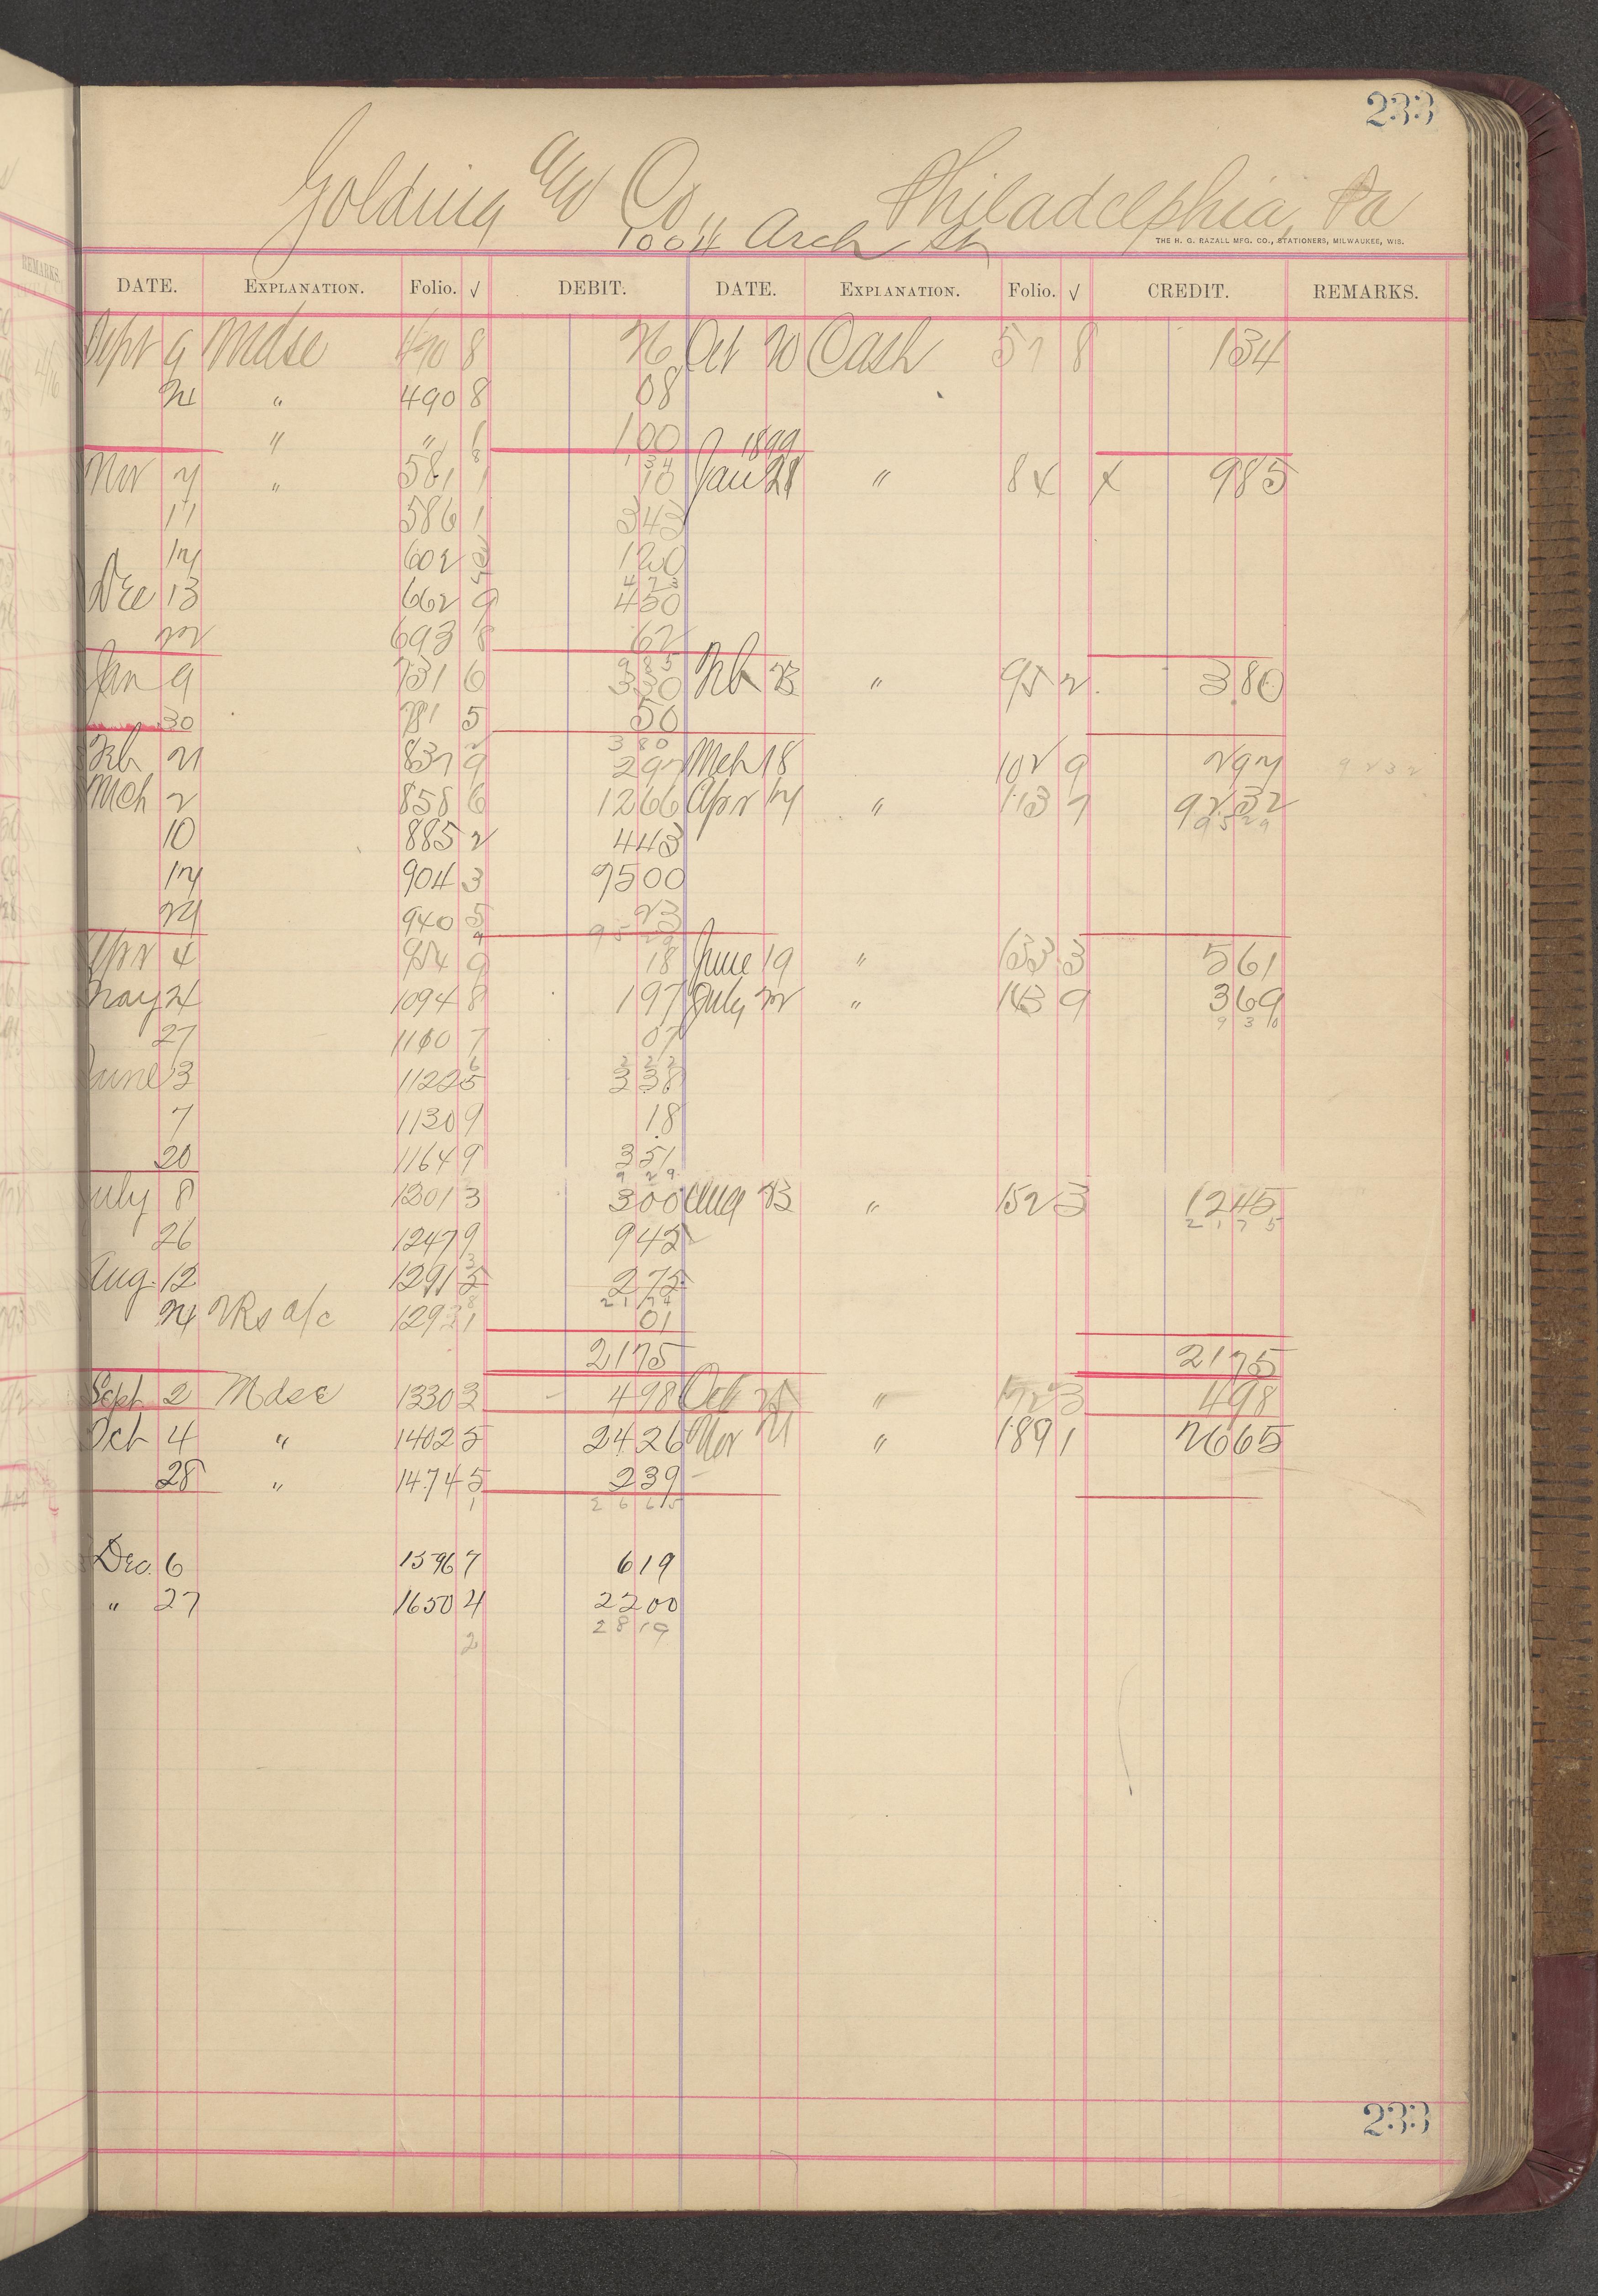 233
Golding & Co Philadelphia, Pa
1004 Arch St
THE H. G. RAZALL MFG. CO., STATIONERS, MILWAUKEE, WIS.
DATE. EXPLANATION. Folio. √ DEBIT. DATE. EXPLANATION. Folio. √ CREDIT. REMARKS.
Sept 9 Mdse 490 8 26 Oct 20 Cash 57 8 134
24 " 490 8 08
" " 1 00 1899
8 1 34
Nov 7 " 581 1 10 Jan 28 " 84 x 9 85
11 586 1 3 43
17 602 3 1 20
5 4 73
Dec 13 662 9 4 50
22 693 8 62
9 85
Jan 9 731 6 3 30 Feb 23 " 95 2 3 80
30 781 5 50
3 80
Feb 21 837 9 2 97 Mch 18 102 9 2 97 92 32
Mch 2 858 6 12 66 Apr 17 " 113 7 92 32
95 29
10 885 2 4 43
17 904 3 75 00
24 940 5 23
9 95 29
Apr 4 954 9 18 June 19 " 133 3 5 61
May 24 1094 8 1 97 July 22 " 143 9 3 69
9 30
27 1100 7 07
6 2 22
June 3 1122 5 3 38
7 1130 9 18
20 1164 9 3 51
9 29
July 8 1201 3 3 00 Aug 23 " 152 3 12 45
21 75
26 1247 9 9 42
3
Aug. 12 1291 5 2 75
8 21 74
24 Frs a/c 1293 1 01
21 75 21 75
Sept 2 Mdse 1330 3 4 98 Oct " 172 3 4 98
Oct 4 " 1402 5 24 26 Nov 21 " 189 1 26 65
28 " 1474 5 2 39
1 26 65
Dec. 6 1596 7 6 19
" 27 1650 4 22 00
2 28 19
233